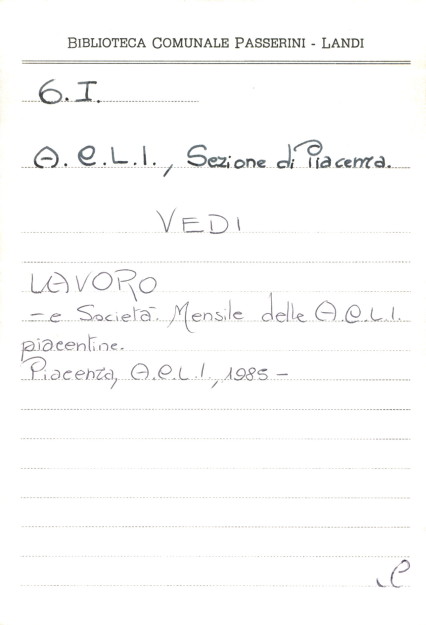 BIBLIOTECA COMUNALE PASSERINI - LANDI
6.I.
A.C.L.I., Sezione di Piacenza.
VEDI
LAVORO
- e Società. Mensile delle A.C.L.I.
piacentine.
Piacenza, A.C.L.I., 1985 -